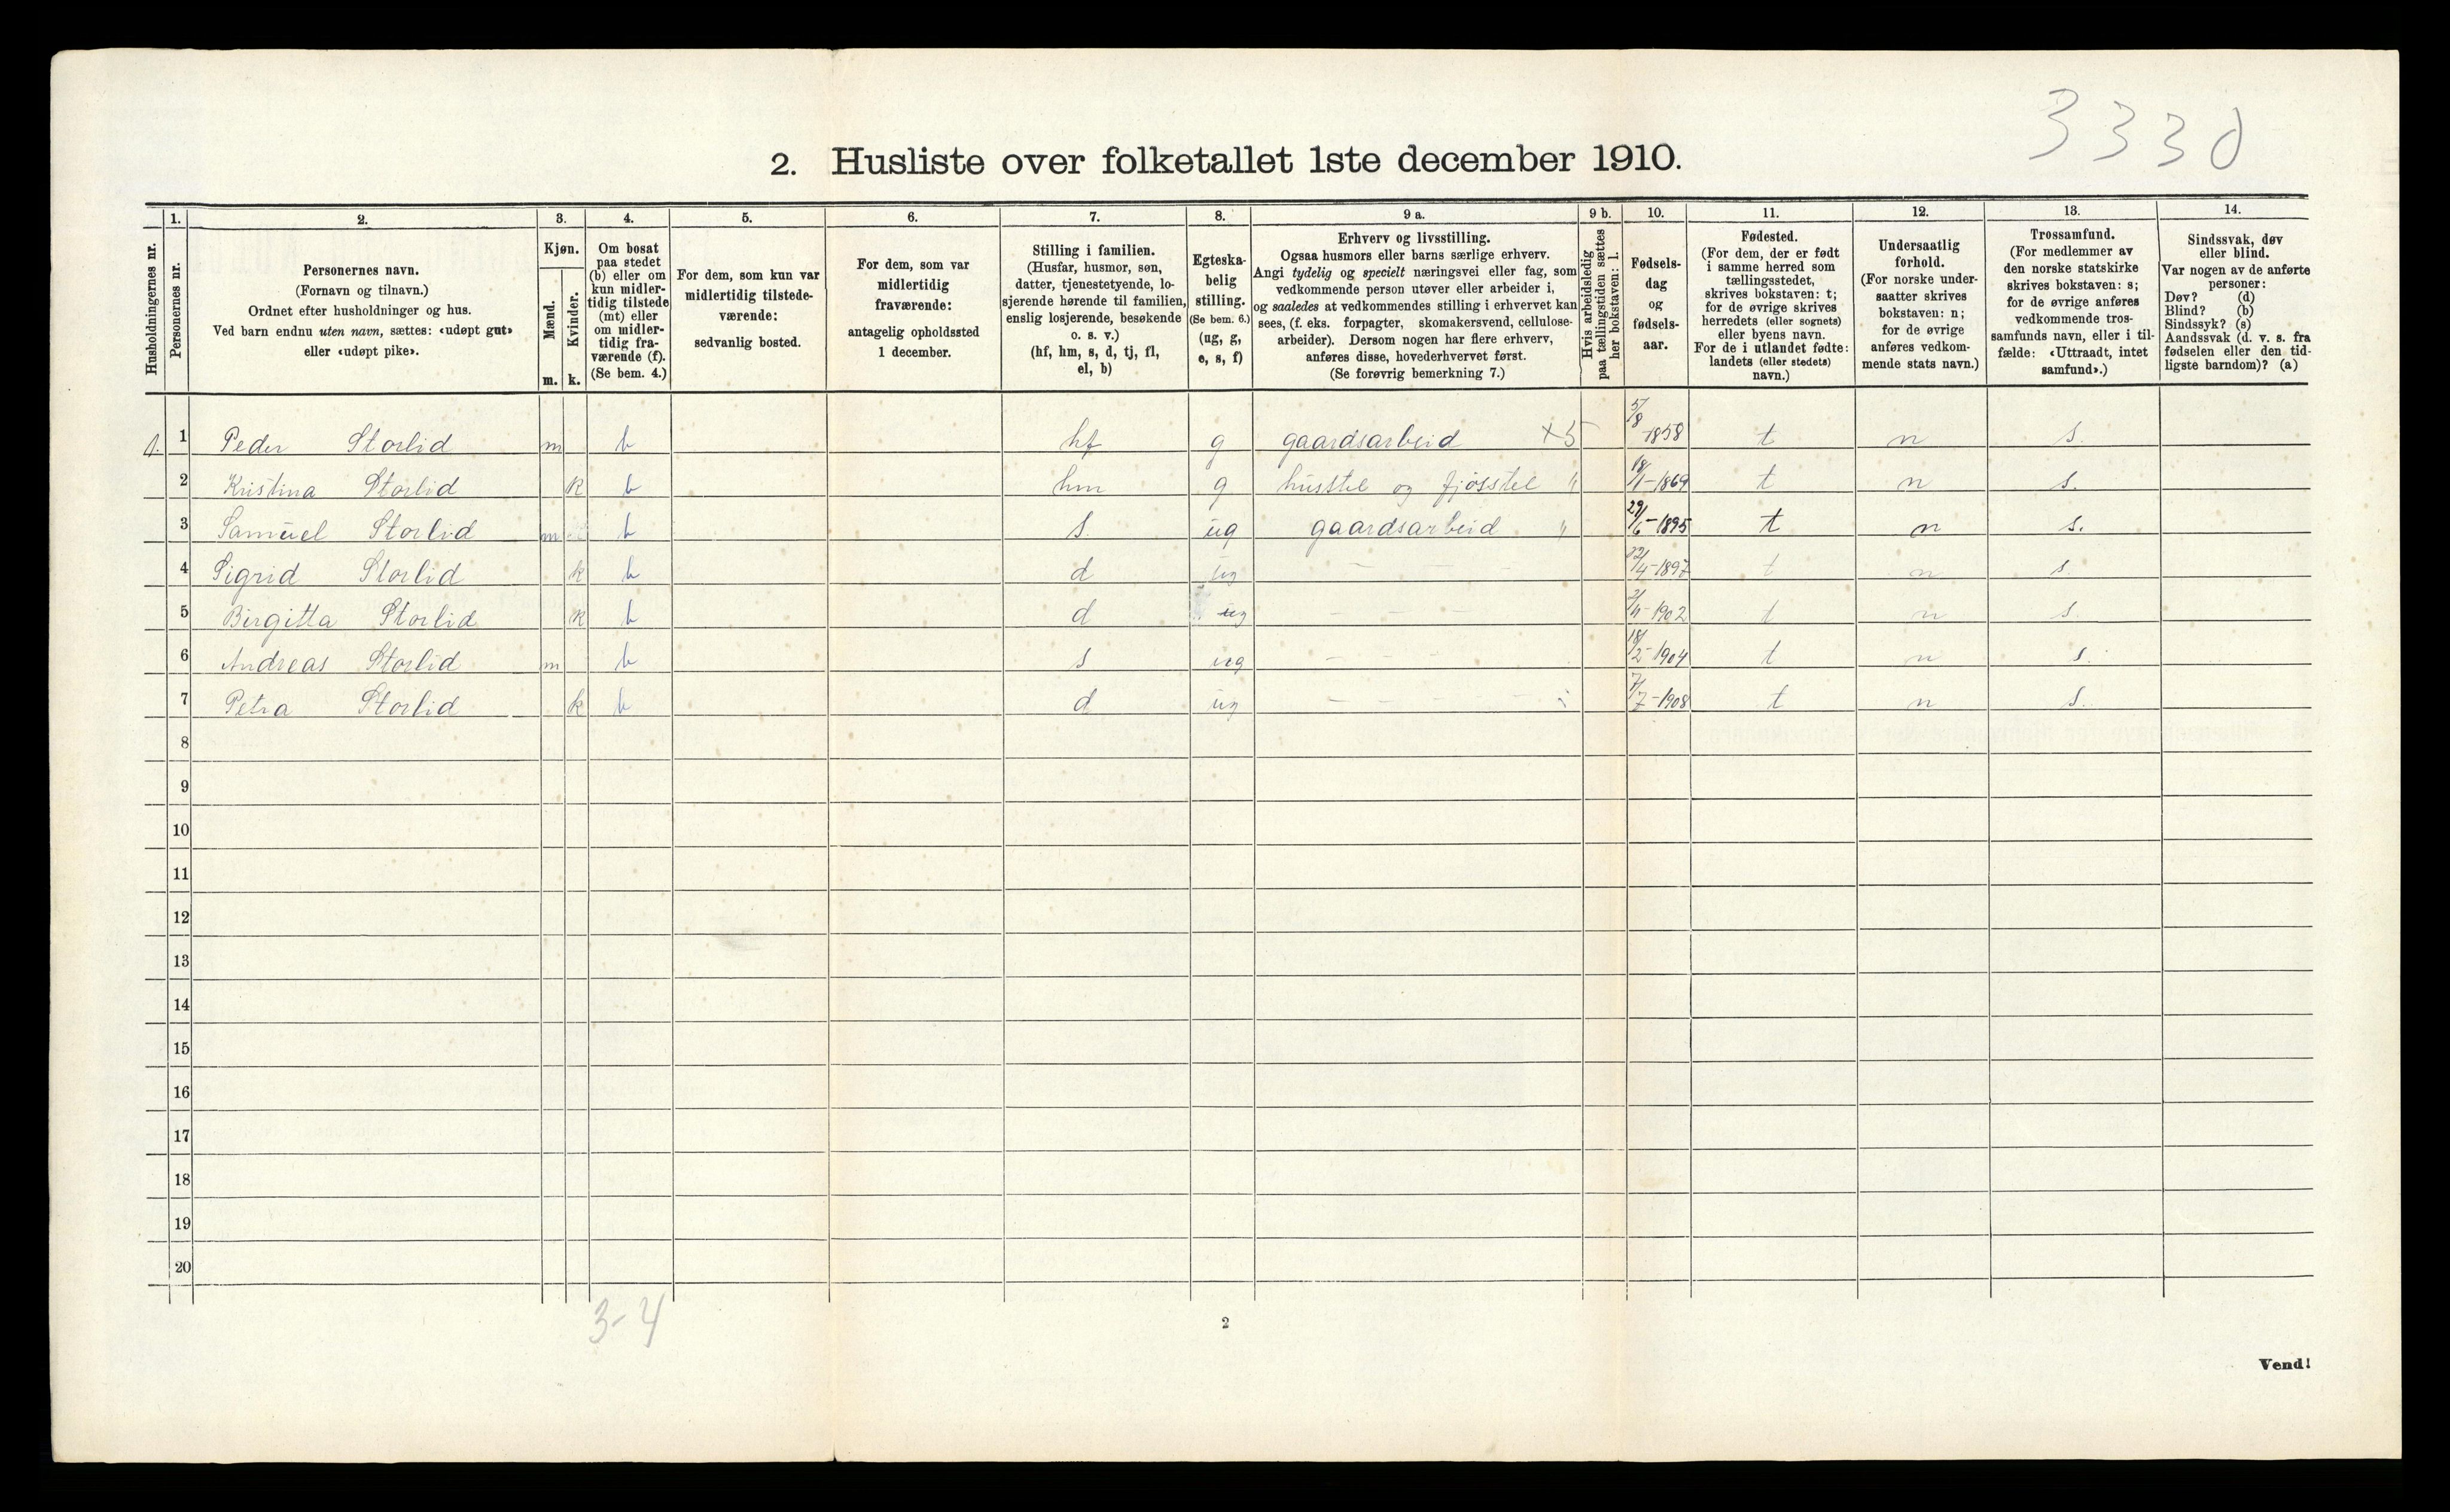 3330
2. Husliste over folketallet 1ste december 1910.
Husholdningernes nr.
1. Personernes nr.
2. Personernes navn.
(Fornavn og tilnavn.)
Ordnet efter husholdninger og hus.
Ved barn endnu uten navn, sættes: «udøpt gut»
eller «udøpt pike».
3. Kjøn.
Mænd. m.
Kvinder. k.
4. Om bosat
paa stedet
(b) eller om
kun midler-
tidig tilstede
(mt) eller
om midler-
tidig fra-
værende (f).
(Se bem. 4.)
5. For dem, som kun var
midlertidig tilstede-
værende:
sedvanlig bosted.
6. For dem, som var
midlertidig
fraværende:
antagelig opholdssted
1 december.
7. Stilling i familien.
(Husfar, husmor, søn,
datter, tjenestetyende, lo-
sjerende hørende til familien,
enslig losjerende, besøkende
o. s. v.)
(hf, hm, s, d, tj, fl,
el, b)
8. Egteska-
belig
stilling.
(Se bem. 6.)
(ug, g,
e, s, f)
9 a. Erhverv og livsstilling.
Ogsaa husmors eller barns særlige erhverv.
Angi tydelig og specielt næringsvei eller fag, som
vedkommende person utøver eller arbeider i,
og saaledes at vedkommendes stilling i erhvervet kan
sees, (f. eks. forpagter, skomakersvend, cellulose-
arbeider). Dersom nogen har flere erhverv,
anføres disse, hovederhvervet først.
(Se forøvrig bemerkning 7.)
9 b. Hvis arbeidsledig
paa tællingstiden sættes
her bokstaven: l.
10. Fødsels-
dag
og
fødsels-
aar.
11. Fødested.
(For dem, der er født
i samme herred som
tællingsstedet,
skrives bokstaven: t;
for de øvrige skrives
herredets (eller sognets)
eller byens navn.
For de i utlandet fødte:
landets (eller stedets)
navn.)
12. Undersaatlig
forhold.
(For norske under-
saatter skrives
bokstaven: n;
for de øvrige
anføres vedkom-
mende stats navn.)
13. Trossamfund.
(For medlemmer av
den norske statskirke
skrives bokstaven: s;
for de øvrige anføres
vedkommende tros-
samfunds navn, eller i til-
fælde: «Uttraadt, intet
samfund».)
14. Sindssvak, døv
eller blind.
Var nogen av de anførte
personer:
Døv? (d)
Blind? (b)
Sindssyk? (s)
Aandssvak (d. v. s. fra
fødselen eller den tid-
ligste barndom)? (a)
1. 1 Peder Storlid m b hf g gaardsarbeid X5 5/8 1858 t n s.
2 Kristina Storlid k b hm g husstel og fjøsstel " 18/1-1869 t n s.
3 Samuel Storlid m b s. ug gaardsarbeid " 29/6-1895 t n s.
4 Sigrid Storlid k b d ug - - - 22/4-1897 t n s.
5 Birgitta Storlid k b d ug - - - 2/11-1902 t n s.
6 Andreas Storlid m b s ug - - - 18/2-1904 t n s.
7 Petra Storlid k b d ug - - - - 7/7-1908 t n s.
8
9
10
11
12
13
14
15
16
17
18
19
20
3-4
2
Vend!